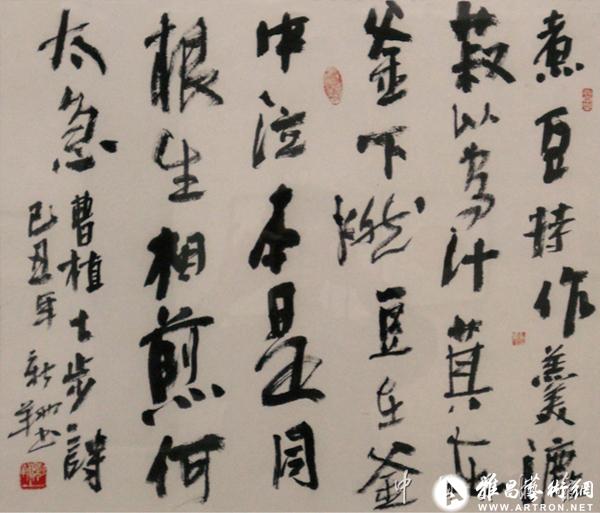 煮豆持作羹漉
菽以為汁萁在
釜下燃豆在釜
中泣本是同
根生相煎何
太急
曹植七步詩
己丑年
雅昌藝術網
WWW.ARTRON.NET